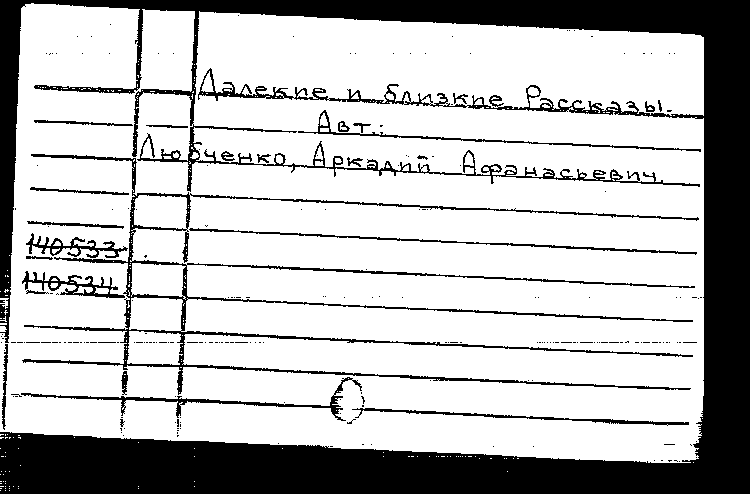 Далекие и близкие Рассказы.
Авт.:
Любченко, Аркадий Афанасьевич.
140533
140534